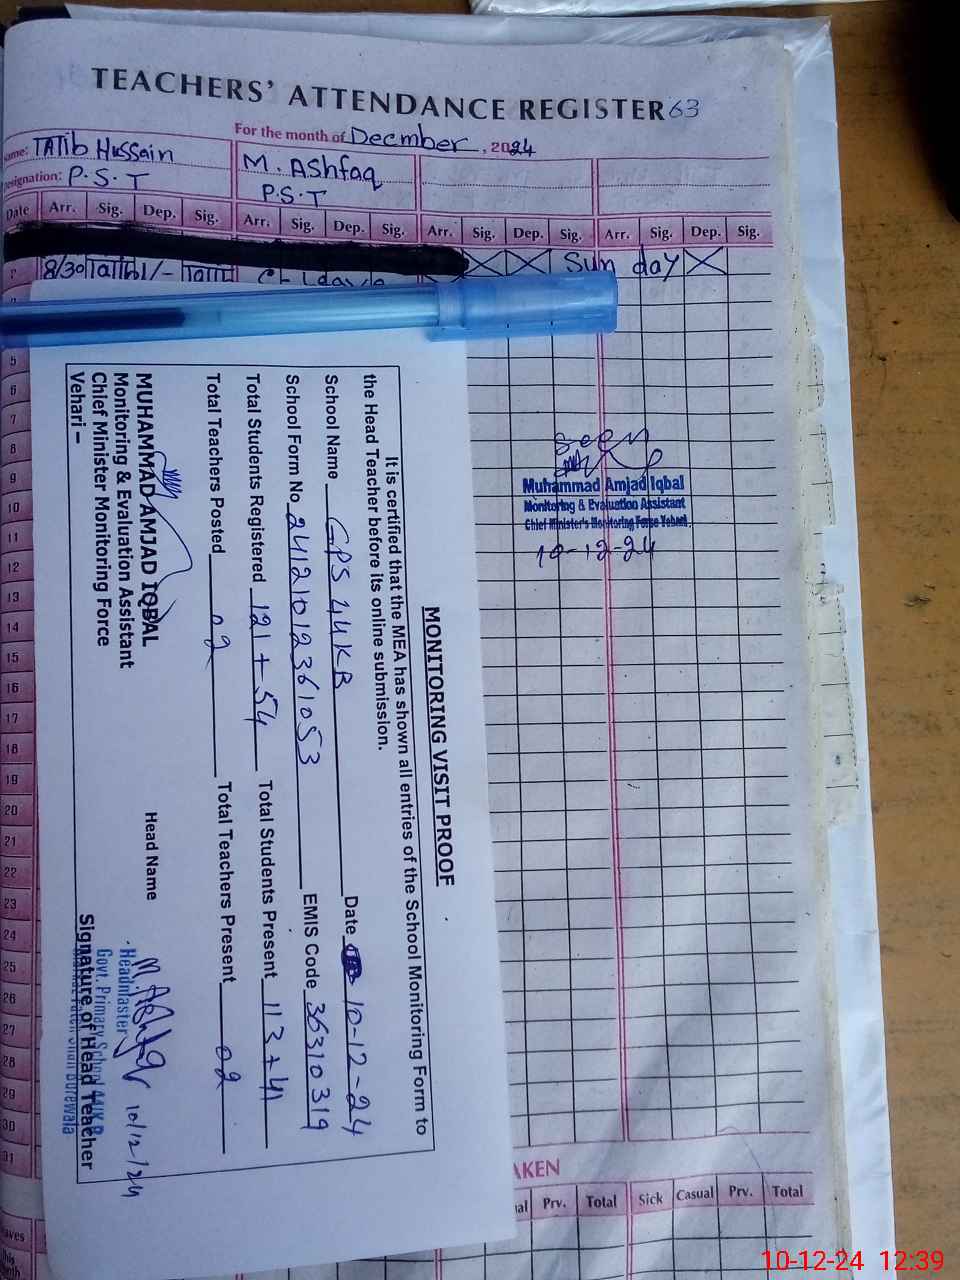 TEACHERS' ATTENDANCE REGISTER 63
For the month of Decmber, 2024
Name: TAlib Hussain
M. Ashfaq
Designation: P.S.T
P.S.T
Date Arr. Sig. Dep. Sig. Arr. Sig. Dep. Sig. Arr. Sig. Dep. Sig. Arr. Sig. Dep. Sig.
8/30
Sunday
5
6
7
8
9
10
11
12
13
14
15
16
17
18
19
20
21
22
23
24
25
26
27
28
29
30
31
Seen
Muhammad Amjad Iqbal
Monitoring & Evaluation Assistant
Chief Minister's Monitoring Force Vehari
10-12-24
MONITORING VISIT PROOF
It is certified that the MEA has shown all entries of the School Monitoring Form to
the Head Teacher before its online submission.
School Name GPS 44KB Date 10-12-24
School Form No 2412101236 1053 EMIS Code 36310319
Total Students Registered 121 + 54 Total Students Present 113 + 41
Total Teachers Posted 02 Total Teachers Present 02
MUHAMMAD AMJAD IQBAL
Head Name
Monitoring & Evaluation Assistant
Chief Minister Monitoring Force
Vehari –
M. Ashfaq 10/12/24
Headmaster
Govt. Primary School 44/K.B
Signature of Head Teacher
Burewala
AKEN
Prv. Total Sick Casual Prv. Total
10-12-24 12:39